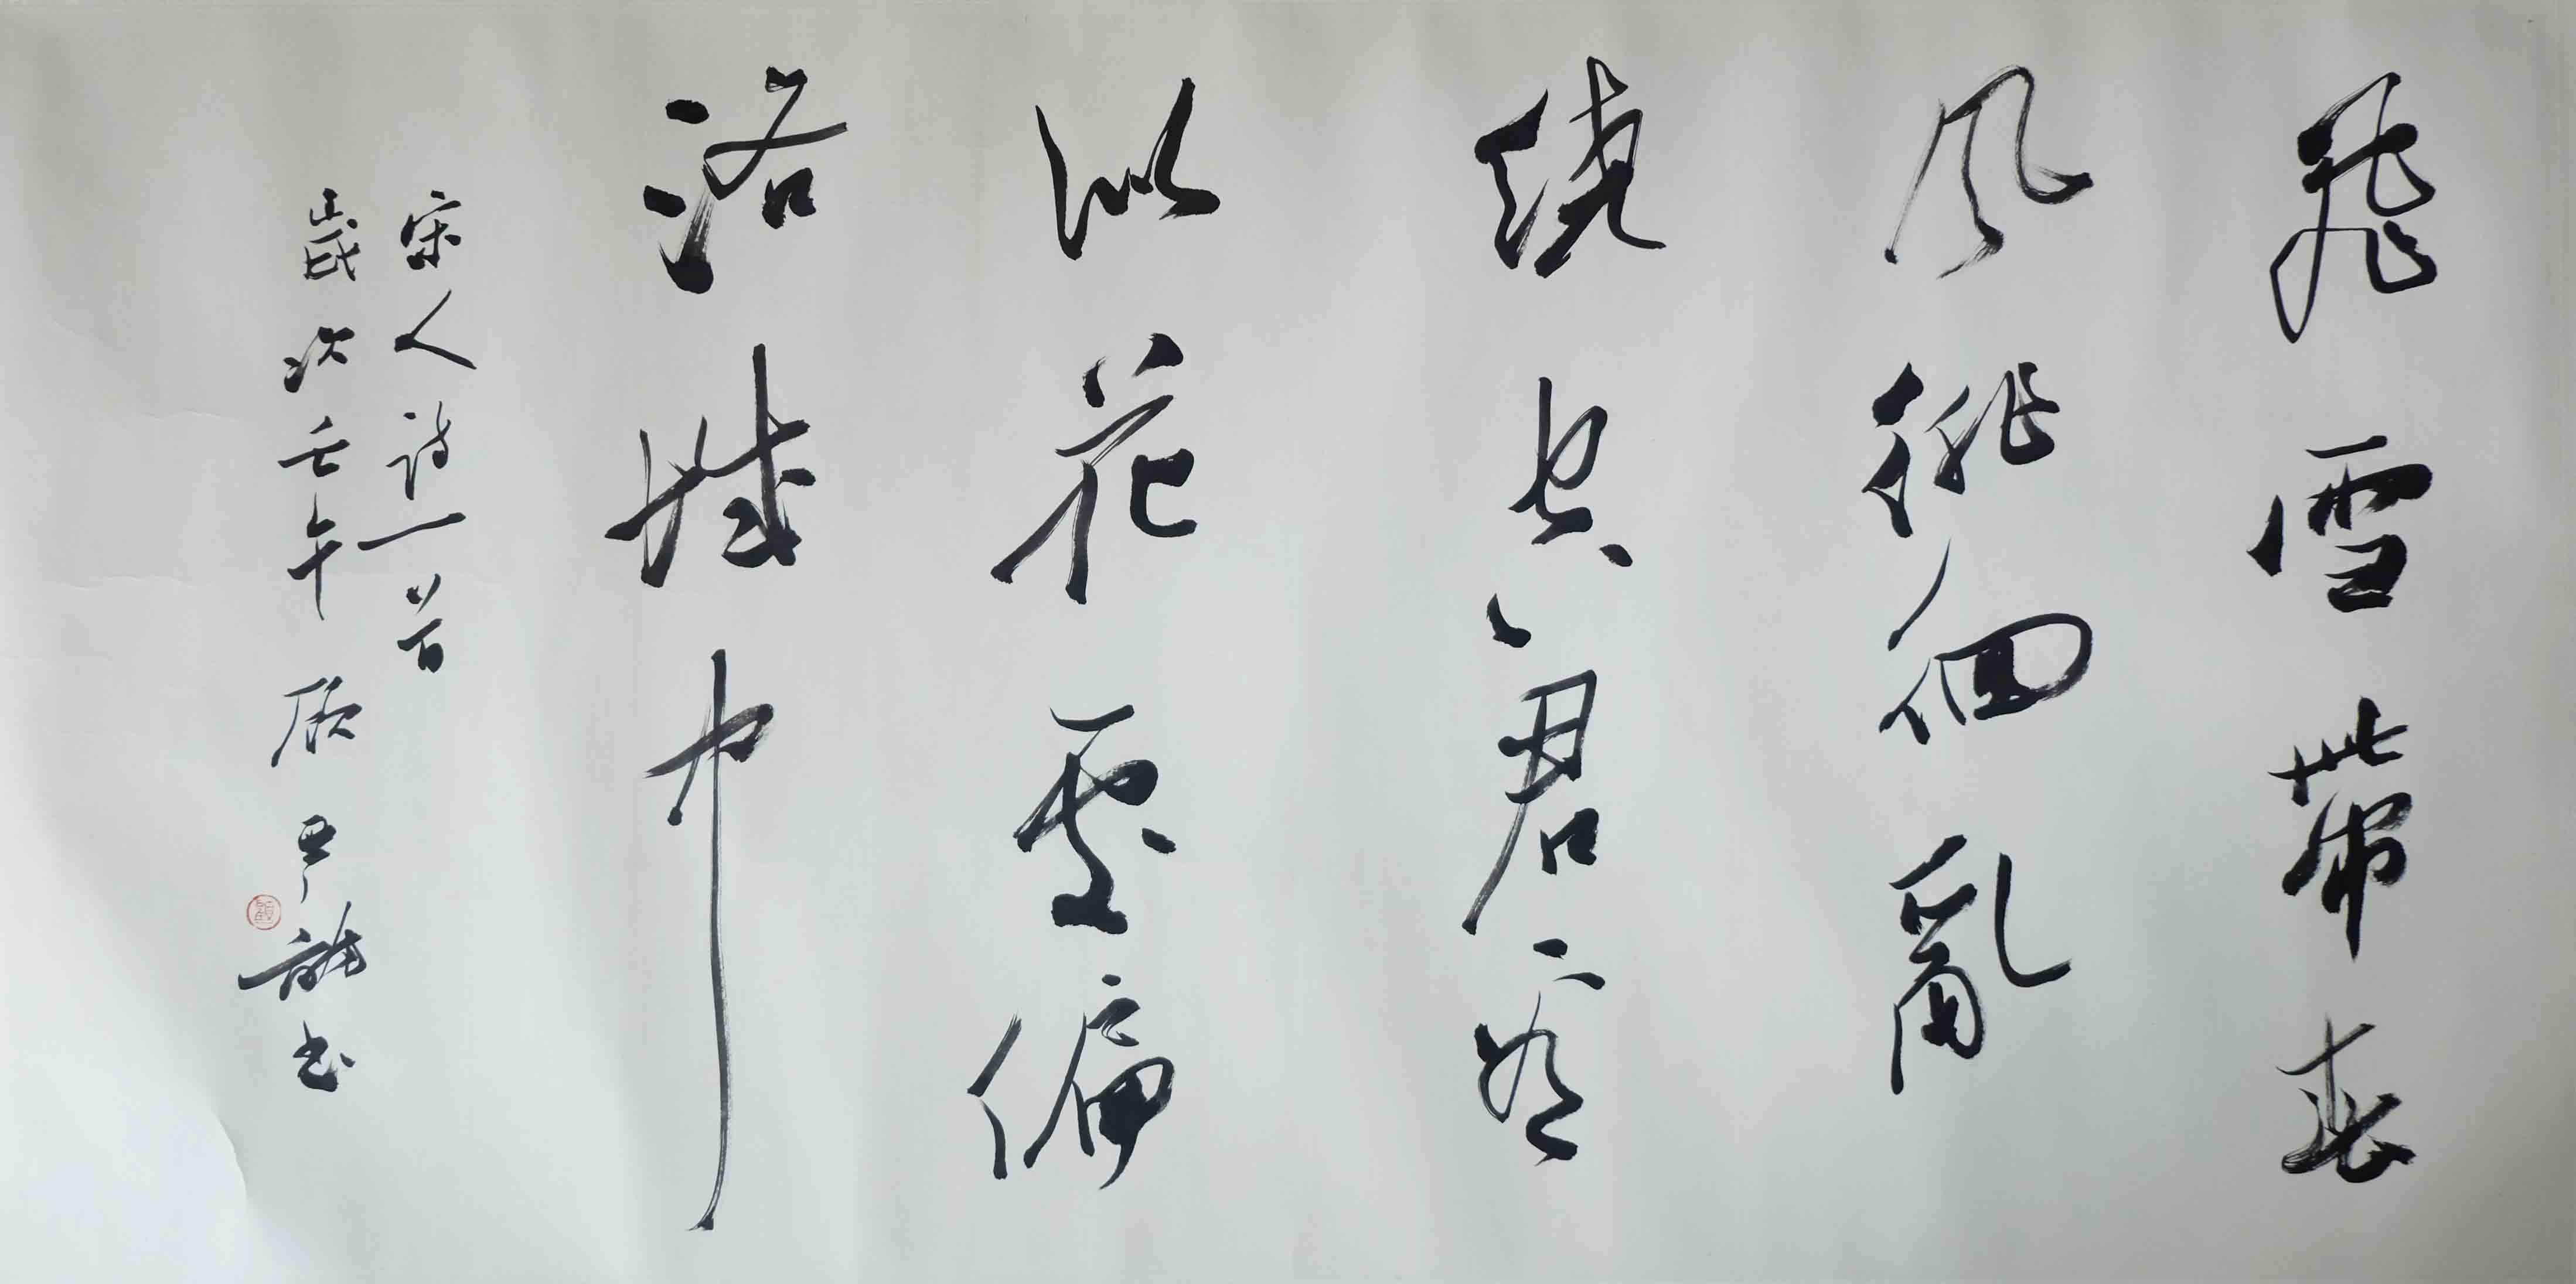 飛雪帶春
風徘徊亂
繞空君看
似花處偏
洛城中
宋人詩一首
歲次壬午顾書
顧